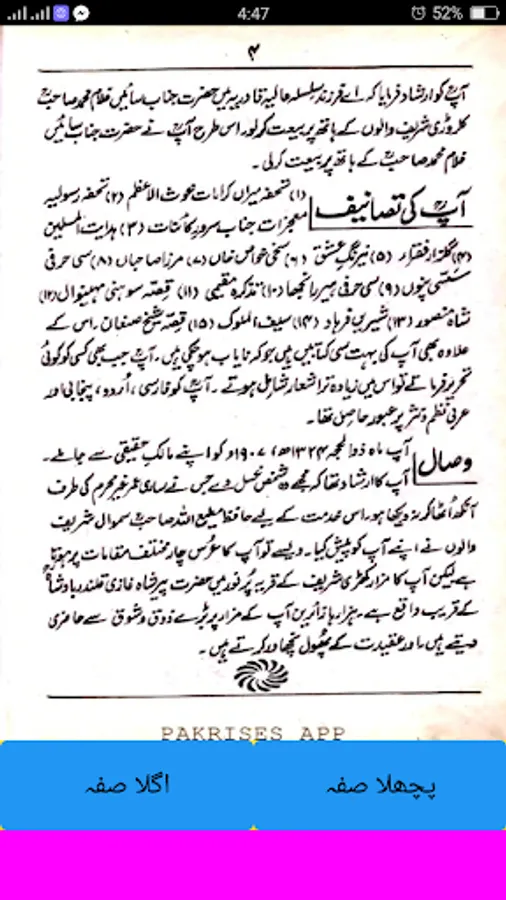 4:47
52%
۴
آپؒ کو ارشاد فرمایا کہ اے فرزند سلسلہ عالیہ قادریہ میں حضرت جناب سائیں غلام محمد صاحبؒ
کلروڑی شریف والوں کے ہاتھ پر بیعت کرلو اور اس طرح آپؒ نے حضرت جناب سائیں
غلام محمد صاحبؒ کے ہاتھ پر بیعت کرلی۔
آپؒ کی تصانیف
(۱) تحفہ میراں کرامات غوث الاعظم (۲) تحفہ رسولیہ
معجزات جناب سرور کائنات (۳) ہدایت المسلمین
(۴) گلزار فقراء (۵) نیرنگ عشق (۶) سخی خواص خاں (۷) مرزا صاحباں (۸) سی حرفی
سسی پنوں (۹) سی حرفی ہیر رانجھا (۱۰) تذکرہ مقیمی (۱۱) قصہ سوہنی مہینوال (۱۲)
شاہ منصور (۱۳) شیریں فرہاد (۱۴) سیف الملوک (۱۵) قصہ شیخ صنعان۔ اس کے
علاوہ بھی آپ کی بہت سی کتابیں ہیں جو کہ نایاب ہوچکی ہیں۔ آپؒ جب بھی کسی کو کوئی
تحریر فرماتے تو اس میں زیادہ تر اشعار شامل ہوتے۔ آپؒ کو فارسی، اُردو، پنجابی اور
عربی نظم و نثر پر عبور حاصل تھا۔
وصال
آپ ماہ ذوالحجہ ۱۳۲۴ھ، ۱۹۰۷ء کو اپنے مالک حقیقی سے جاملے۔
آپ کا ارشاد تھا کہ مجھے وہ شخص غسل دے جس نے ساری عمر غیر محرم کی طرف
آنکھ اُٹھا کر نہ دیکھا ہو۔ اس خدمت کے لیے حافظ مطیع اللہ صاحبؒ سموال شریف
والوں نے اپنے آپ کو پیش کیا۔ ویسے تو آپ کا عرس چار مختلف مقامات پر ہوتا
ہے لیکن آپ کا مزار کھڑی شریف کے قریہ پُرنور میں حضرت پیر شاہ غازی قلندر بادشاہؒ
کے قریب واقع ہے۔ ہزارہا زائرین آپ کے مزار پر بڑے ذوق و شوق سے حاضری
دیتے ہیں۔ اور عقیدت کے پھول نچھاور کرتے ہیں۔
PAKRISES APP
پچھلا صفہ
اگلا صفہ